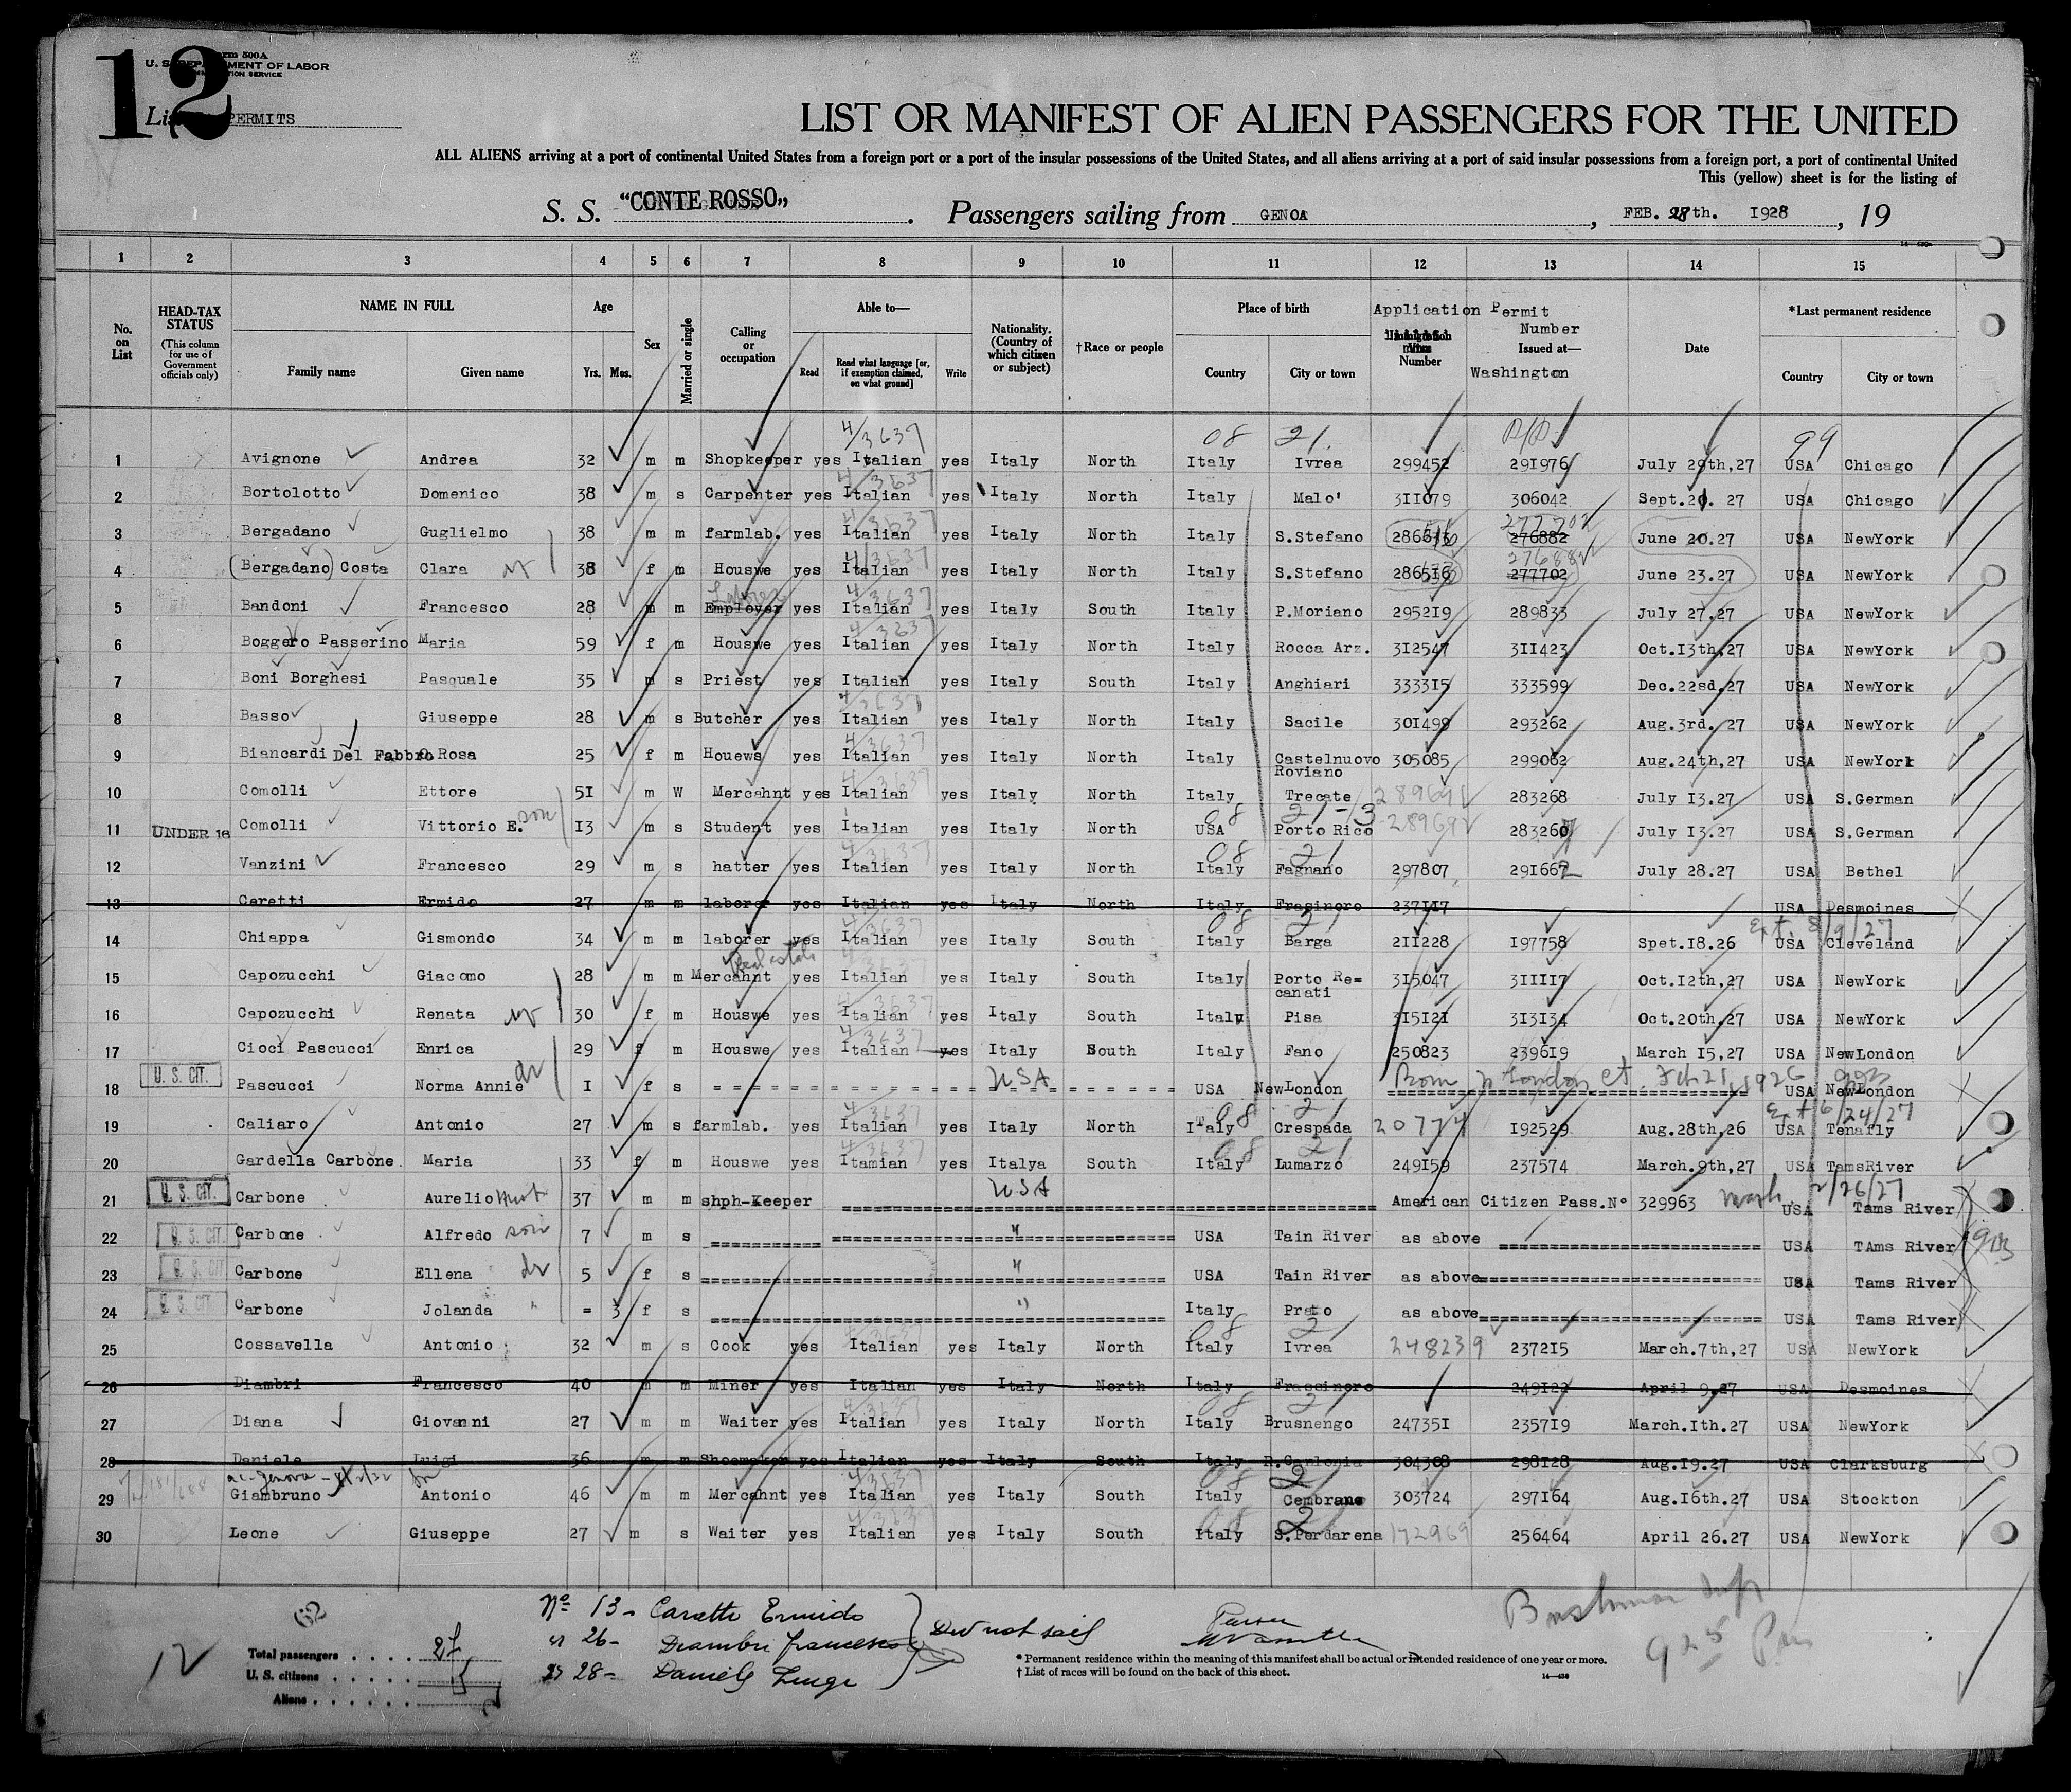 12
Form 500A
U. S. DEPARTMENT OF LABOR
IMMIGRATION SERVICE
List PERMITS
LIST OR MANIFEST OF ALIEN PASSENGERS FOR THE UNITED
ALL ALIENS arriving at a port of continental United States from a foreign port or a port of the insular possessions of the United States, and all aliens arriving at a port of said insular possessions from a foreign port, a port of continental United
This (yellow) sheet is for the listing of
S. S. "CONTE ROSSO". Passengers sailing from GENOA, FEB. 28th. 1928, 19
1 2 3 4 5 6 7 8 9 10 11 12 13 14 15
No. on List
HEAD-TAX STATUS (This column for use of Government officials only)
NAME IN FULL Family name Given name
Age Yrs. Mos.
Sex
Married or single
Calling or occupation
Able to— Read Read what language [or, if exemption claimed, on what ground] Write
Nationality. (Country of which citizen or subject)
†Race or people
Place of birth Country City or town
Application Number
Permit Number Issued at— Washington
Date
*Last permanent residence Country City or town
4/3637 08 21. P/P 99
1 Avignone Andrea 32 m m Shopkeeper yes Italian yes Italy North Italy Ivrea 299452 291976 July 29th,27 USA Chicago
2 Bortolotto Domenico 38 m s Carpenter yes Italian yes Italy North Italy Malo' 311079 306042 Sept.20. 27 USA Chicago
3 Bergadano Guglielmo 38 m m farmlab. yes Italian yes Italy North Italy S.Stefano 286616 276882 277702 June 20.27 USA NewYork
4 (Bergadano) Costa Clara 38 f m Houswe yes Italian yes Italy North Italy S.Stefano 286516 277702 276882 June 23.27 USA NewYork
5 Bandoni Francesco 28 m m Employer Laborer yes Italian yes Italy South Italy P.Moriano 295219 289833 July 27.27 USA NewYork
6 Boggero Passerino Maria 59 f m Houswe yes Italian yes Italy North Italy Rocca Arz. 312547 311423 Oct.13th,27 USA NewYork
7 Boni Borghesi Pasquale 35 m s Priest yes Italian yes Italy South Italy Anghiari 333315 333599 Dec.22sd,27 USA NewYork
8 Basso Giuseppe 28 m s Butcher yes Italian yes Italy North Italy Sacile 301498 293262 Aug.3rd. 27 USA NewYork
9 Biancardi Del Fabbro Rosa 25 f m Houews yes Italian yes Italy North Italy Castelnuovo Roviano 305085 299062 Aug.24th,27 USA NewYork
10 Comolli Ettore 51 m W Mercahnt yes Italian yes Italy North Italy Trecate 289691 283268 July 13.27 USA S.German
11 UNDER 16 Comolli Vittorio E. son 13 m s Student yes Italian yes Italy North USA Porto Rico 289692 283267 July 13.27 USA S.German
12 Vanzini Francesco 29 m s hatter yes Italian yes Italy North Italy Fagnano 297807 291662 July 28.27 USA Bethel
13 Caretti Ermido 27 m m laborer yes Italian yes Italy North Italy Frasinoro 237117 USA Desmoines
14 Chiappa Gismondo 34 m m laborer yes Italian yes Italy South Italy Barga 211228 197758 Spet.18.26 Ext. 8/9/27 USA Cleveland
15 Capozucchi Giacomo 28 m m Mercahnt Real estate yes Italian yes Italy South Italy Porto Re= canati 315047 311117 Oct.12th,27 USA NewYork
16 Capozucchi Renata 30 f m Houswe yes Italian yes Italy South Italy Pisa 315121 313134 Oct.20th,27 USA NewYork
17 Cioci Pascucci Enrica 29 f m Houswe yes Italian yes Italy South Italy Fano 250823 239619 March 15,27 USA NewLondon
18 U. S. CIT. Pascucci Norma Annie 1 f s USA USA NewLondon Born N London Ct. Feb 21, 1926 USA NewLondon
19 Caliaro Antonio 27 m s farmlab. yes Italian yes Italy North Italy Crespada 20774 192529 Aug.28th,26 Ext 6/24/27 USA Tenafly
20 Gardella Carbone Maria 33 f m Houswe yes Itamian yes Italya South Italy Lumarzo 249159 237574 March.9th,27 USA TamsRiver
21 U. S. CIT. Carbone Aurelio Husb 37 m m shph-Keeper USA American Citizen Pass.N° 329963 Wash. 2/26/27 USA Tams River
22 U. S. CIT. Carbone Alfredo son 7 m s " USA Tain River as above USA TAms River
23 U. S. CIT. Carbone Ellena 5 f s " USA Tain River as above USA Tams River
24 U. S. CIT. Carbone Jolanda " = 3 f s " Italy Prato as above USA Tams River
25 Cossavella Antonio 32 m s Cook yes Italian yes Italy North Italy Ivrea 248239 237215 March.7th,27 USA NewYork
26 Diambri Francesco 40 m m Miner yes Italian yes Italy North Italy Frassinoro 249122 April 9.27 USA Desmoines
27 Diana Giovanni 27 m m Waiter yes Italian yes Italy North Italy Brusnengo 247351 235719 March.1th.27 USA NewYork
28 Daniele Luigi 36 m m Shoemaker yes Italian yes Italy South Italy R.Caulonia 304308 298128 Aug.19.27 USA Clarksburg
29 Giambruno Antonio 46 m m Mercahnt yes Italian yes Italy South Italy Cembrano 303724 297164 Aug.16th.27 USA Stockton
30 Leone Giuseppe 27 m s Waiter yes Italian yes Italy South Italy S.Perdarena 172969 256464 April 26.27 USA NewYork
No 13- Caretti Ermido
" 26- Diambri Francesco
" 28- Daniele Luigi
Did not sail
Purser
12
Total passengers . . . . 27
U. S. citizens . . . . . 5
Aliens . . . . . .
* Permanent residence within the meaning of this manifest shall be actual or intended residence of one year or more.
† List of races will be found on the back of this sheet.
14—430